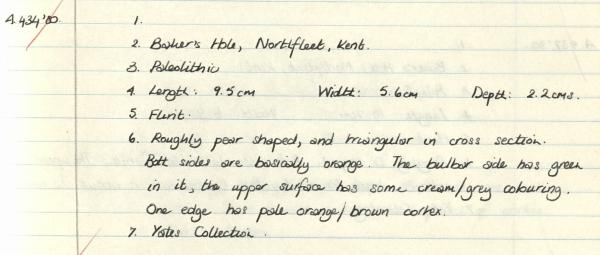 A.434'80. 1.
2. Baker's Hole, Northfleet, Kent.
3. Paleolithic
4. Length: 9.5cm Width: 5.6cm Depth: 2.2cms.
5. Flint.
6. Roughly pear shaped, and triangular in cross section.
Both sides are basically orange. The bulbar side has green
in it, the upper surface has some cream/grey colouring.
One edge has pale orange/brown cortex.
7. Yates Collection.